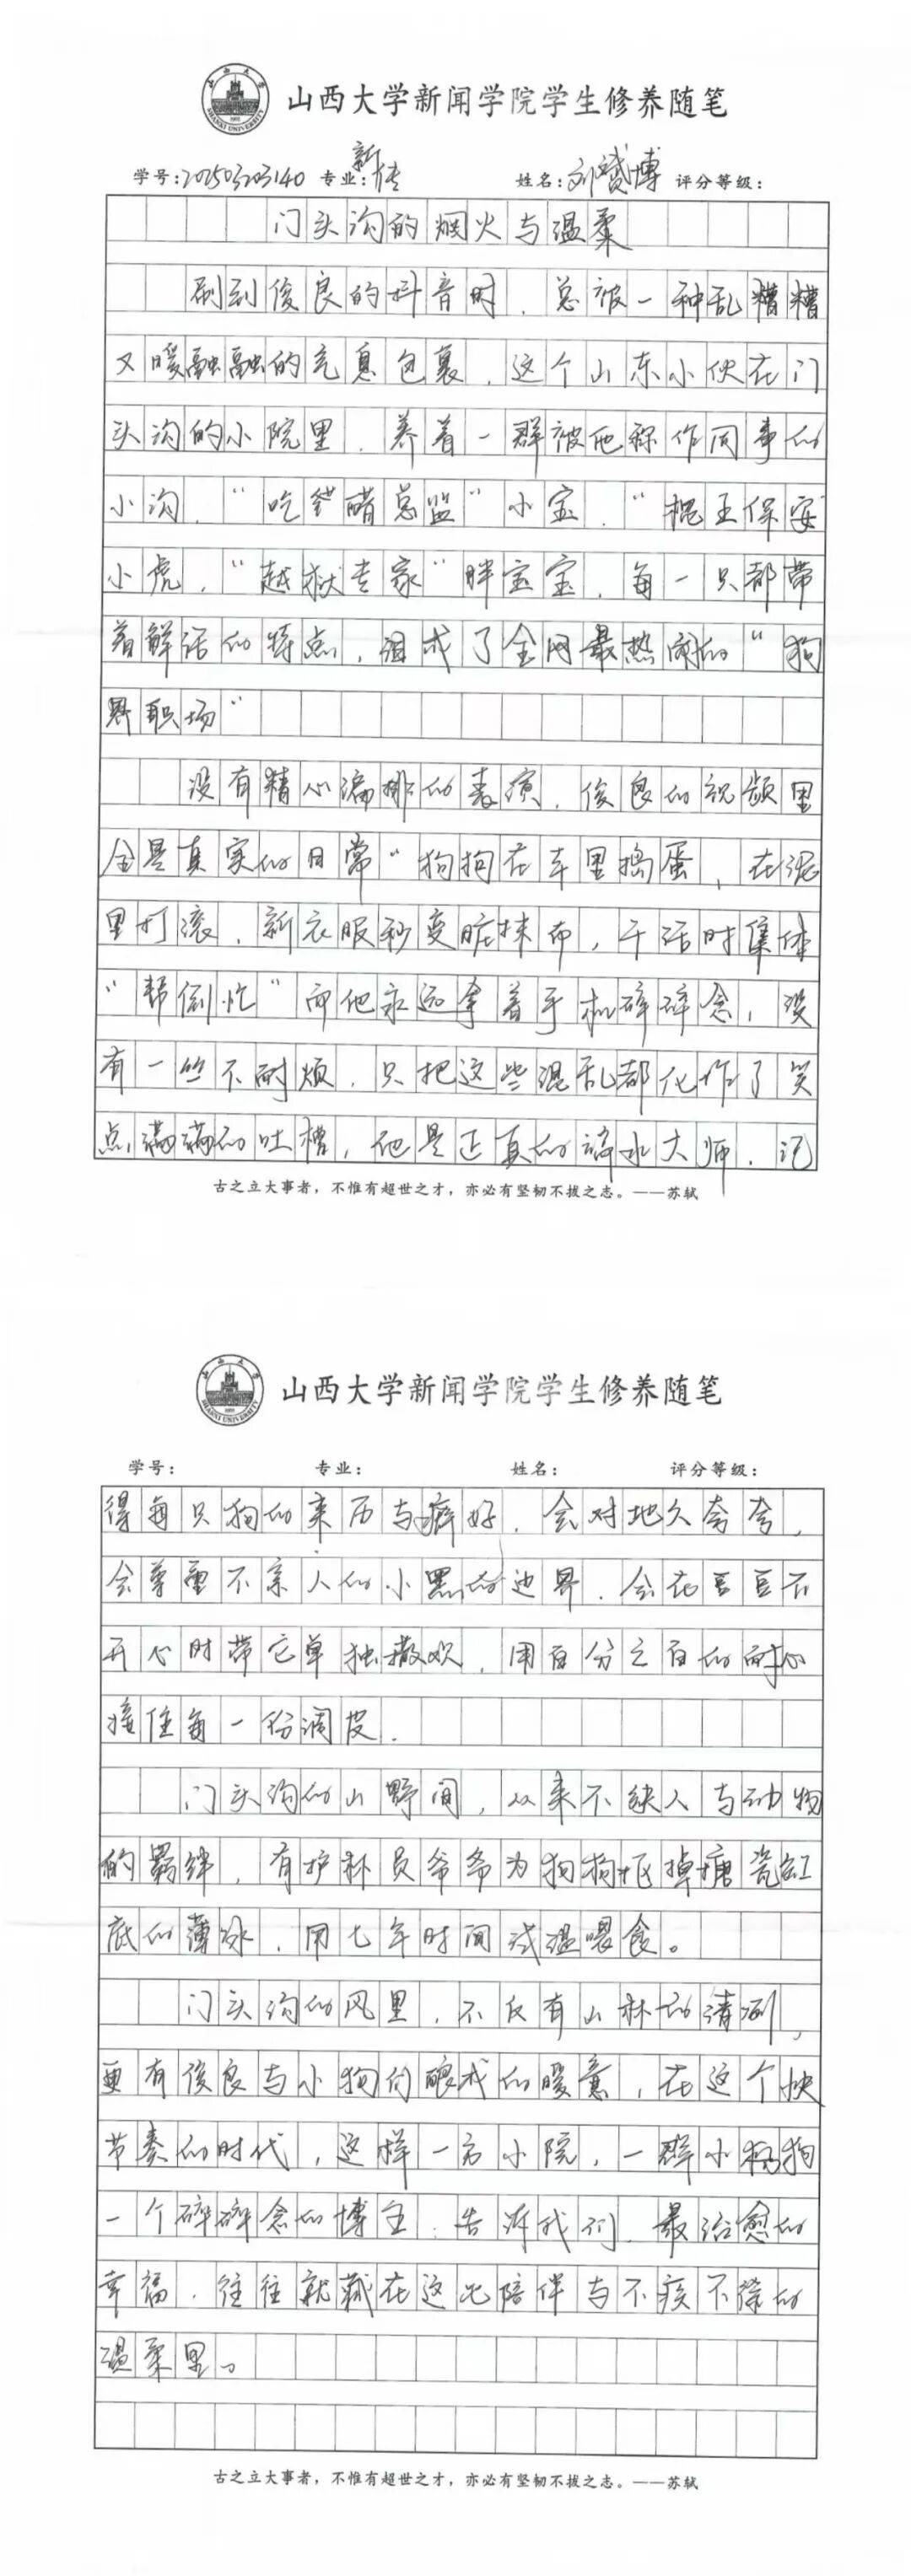 山西大学新闻学院学生修养随笔
学号:20250323140 专业:新传 姓名:刘赟博 评分等级:
门头沟的烟火与温柔
刷到俊良的抖音时，总被一种乱糟糟
又暖融融的气息包裹，这个山东小伙在门
头沟的小院里，养着一群被他称作同事的
小沟，“吃醋总监”小宝，“棍王保安
小虎，“越狱专家”胖宝宝，每一只都带
着鲜活的特点，组成了全网最热闹的“狗
界职场”
没有精心编排的表演，俊良的视频里
全是真实的日常“狗狗在车里捣蛋，在泥
里打滚，新衣服秒变脏抹布，干活时集体
“帮倒忙”而他永远拿着手机碎碎念，没
有一丝不耐烦，只把这些混乱都化作了笑
点满满的吐槽，他是正真的端水大师，记
古之立大事者，不惟有超世之才，亦必有坚韧不拔之志。——苏轼
山西大学新闻学院学生修养随笔
学号: 专业: 姓名: 评分等级:
得每只狗的来历与癖好，会对地久夸夸，
会尊重不亲人的小黑的边界，会在豆豆不
开心时带它单独撒欢，用百分之百的耐心
接住每一份调皮.
门头沟的山野间，从来不缺人与动物
的羁绊，有护林员爷爷为狗狗抠掉搪瓷缸
底的薄冰，用七年时间试温喂食。
门头沟的风里，不仅有山林的清冽，
更有俊良与小狗们酿成的暖意，在这个快
节奏的时代，这样一方小院，一群小狗狗
一个碎碎念的博主，告诉我们，最治愈的
幸福，往往就藏在这些陪伴与不疾不徐的
温柔里。
古之立大事者，不惟有超世之才，亦必有坚韧不拔之志。——苏轼